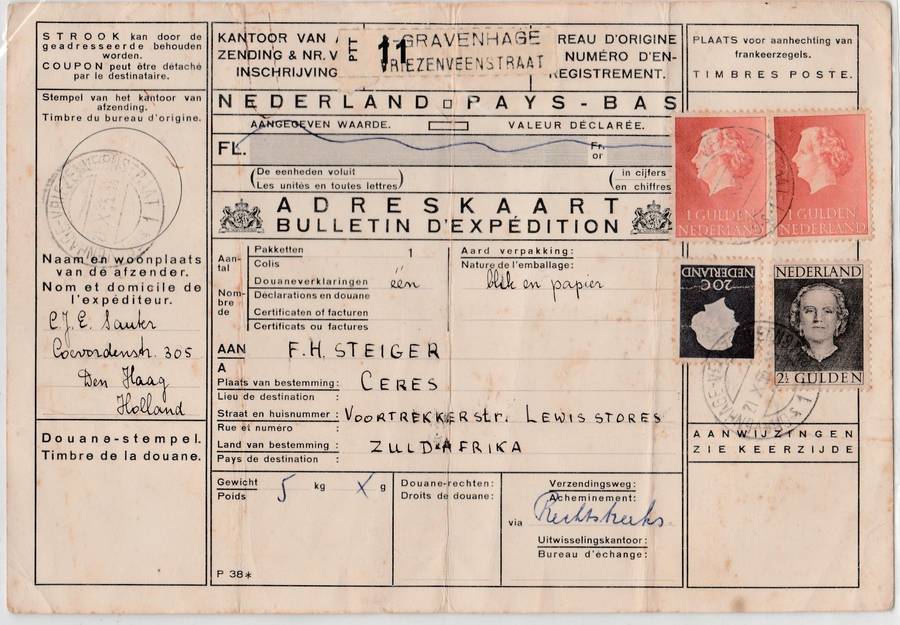 STROOK kan door de
geadresseerde behouden
worden.
COUPON peut être détaché
par le destinataire.
Stempel van het kantoor van
afzending.
Timbre du bureau d'origine.
Naam en woonplaats
van de afzender.
Nom et domicile de
l'expéditeur.
C.J.E. Sauter
Coevordenstr. 305
Den Haag
Holland
Douane-stempel.
Timbre de la douane.
KANTOOR VAN A
ZENDING & NR. V
INSCHRIJVING
PTT
11
-GRAVENHAGE
VRIEZENVEENSTRAAT
REAU D'ORIGINE
NUMÉRO D'EN-
REGISTREMENT.
NEDERLAND PAYS-BAS
AANGEGEVEN WAARDE. VALEUR DÉCLARÉE.
FL. Fr.
or
(De eenheden voluit (in cijfers
Les unités en toutes lettres) en chiffres
ADRESKAART
BULLETIN D'EXPÉDITION
Aan-
tal
Nom-
bre
de
Pakketten 1
Colis
Douaneverklaringen één
Déclarations en douane
Certificaten of facturen
Certificats ou factures
Aard verpakking:
Nature de l'emballage:
blik en papier
AAN F.H. STEIGER
A
Plaats van bestemming: CERES
Lieu de destination :
Straat en huisnummer: VOORTREKKERStr. LEWIS STORES
Rue et numéro :
Land van bestemming: ZUID AFRIKA
Pays de destination :
Gewicht 5 kg X g
Poids
Douane-rechten:
Droits de douane:
Verzendingsweg:
Acheminement:
via Rechtstreeks.
Uitwisselingskantoor:
Bureau d'échange:
P 38*
PLAATS voor aanhechting van
frankeerzegels.
TIMBRES POSTE.
1 GULDEN
NEDERLAND
1 GULDEN
NEDERLAND
20C
NEDERLAND
NEDERLAND
2½ GULDEN
AANWIJZINGEN
ZIE KEERZIJDE